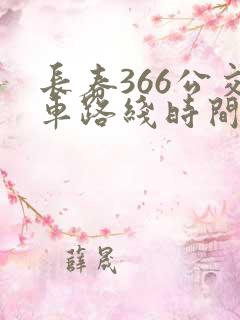 長春366公交
車路綫時間
薛晟